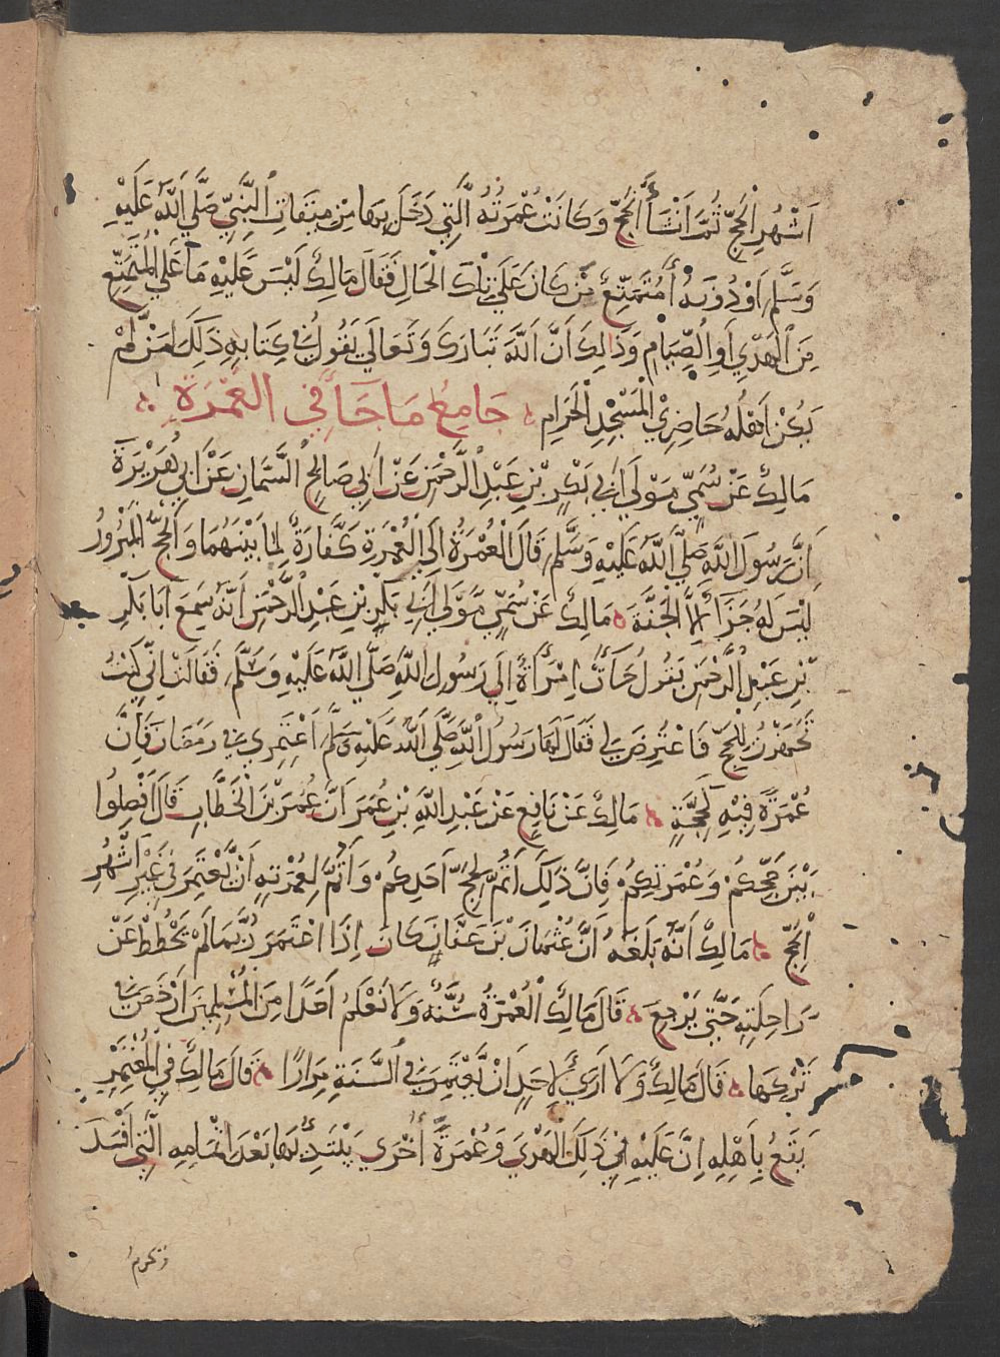 اَشْهُرِ الْحَجِّ ثُمَّ اَنْشَأَ الْحَجَّ وَكَانَتْ عُمْرَتُهُ الَّتِي دَخَلَ بِهَا مِنْ مِيقَاتِ النَّبِيِّ صَلَّى اللَّهُ عَلَيْهِ
وَسَلَّمَ اَوْ دُونَهُ أَمُتَمَتِّعٌ مَنْ كَانَ عَلَى تِلْكَ الْحَالِ فَقَالَ مَالِكٌ لَيْسَ عَلَيْهِ مَا عَلَى الْمُتَمَتِّعِ
مِنَ الْهَدْيِ اَوِ الصِّيَامِ وَذَلِكَ اَنَّ اللَّهَ تَبَارَكَ وَتَعَالَى يَقُولُ فِي كِتَابِهِ ذَلِكَ لِمَنْ لَمْ
يَكُنْ اَهْلُهُ حَاضِرِي الْمَسْجِدِ الْحَرَامِ جَامِعُ مَا جَاءَ فِي الْعُمْرَةِ
مَالِكٌ عَنْ سُمَيٍّ مَوْلَى اَبِي بَكْرِ بْنِ عَبْدِ الرَّحْمَنِ عَنْ اَبِي صَالِحٍ السَّمَّانِ عَنْ اَبِي هُرَيْرَةَ
اَنَّ رَسُولَ اللَّهِ صَلَّى اللَّهُ عَلَيْهِ وَسَلَّمَ قَالَ الْعُمْرَةُ اِلَى الْعُمْرَةِ كَفَّارَةٌ لِمَا بَيْنَهُمَا وَالْحَجُّ الْمَبْرُورُ
لَيْسَ لَهُ جَزَاءٌ اِلَّا الْجَنَّةَ مَالِكٌ عَنْ سُمَيٍّ مَوْلَى اَبِي بَكْرِ بْنِ عَبْدِ الرَّحْمَنِ اَنَّهُ سَمِعَ اَبَا بَكْرِ
بْنِ عَبْدِ الرَّحْمَنِ يَقُولُ جَاءَتْ اِمْرَأَةٌ اِلَى رَسُولِ اللَّهِ صَلَّى اللَّهُ عَلَيْهِ وَسَلَّمَ فَقَالَتْ اِنِّي كُنْتُ
تَجَهَّزْتُ لِلْحَجِّ فَاعْتُرِضَ لِي فَقَالَ لَهَا رَسُولُ اللَّهِ صَلَّى اللَّهُ عَلَيْهِ وَسَلَّمَ اعْتَمِرِي فِي رَمَضَانَ فَاِنَّ
عُمْرَةً فِيهِ كَحَجَّةٍ مَالِكٌ عَنْ نَافِعٍ عَنْ عَبْدِ اللَّهِ بْنِ عُمَرَ اَنَّ عُمَرَ بْنَ الْخَطَّابِ قَالَ افْصِلُوا
بَيْنَ حَجِّكُمْ وَعُمْرَتِكُمْ فَاِنَّ ذَلِكَ اَتَمُّ لِحَجِّ اَحَدِكُمْ وَاَتَمُّ لِعُمْرَتِهِ اَنْ يَعْتَمِرَ فِي غَيْرِ اَشْهُرِ
الْحَجِّ مَالِكٌ اَنَّهُ بَلَغَهُ اَنَّ عُثْمَانَ بْنَ عَفَّانَ كَانَ اِذَا اعْتَمَرَ رُبَّمَا لَمْ يَحْطُطْ عَنْ
رَاحِلَتِهِ حَتَّى يَرْجِعَ قَالَ مَالِكٌ الْعُمْرَةُ سُنَّةٌ وَلَا نَعْلَمُ اَحَدًا مِنَ الْمُسْلِمِينَ اَرْخَصَ فِي
تَرْكِهَا قَالَ مَالِكٌ وَلَا اَرَى لِاَحَدٍ اَنْ يَعْتَمِرَ فِي السَّنَةِ مِرَارًا قَالَ مَالِكٌ فِي الْمُعْتَمِرِ
يَقَعُ بِاَهْلِهِ اِنَّ عَلَيْهِ فِي ذَلِكَ الْهَدْيَ وَعُمْرَةً أُخْرَى يَبْتَدِئُ بِهَا بَعْدَ اِتْمَامِهِ الَّتِي اَفْسَدَ